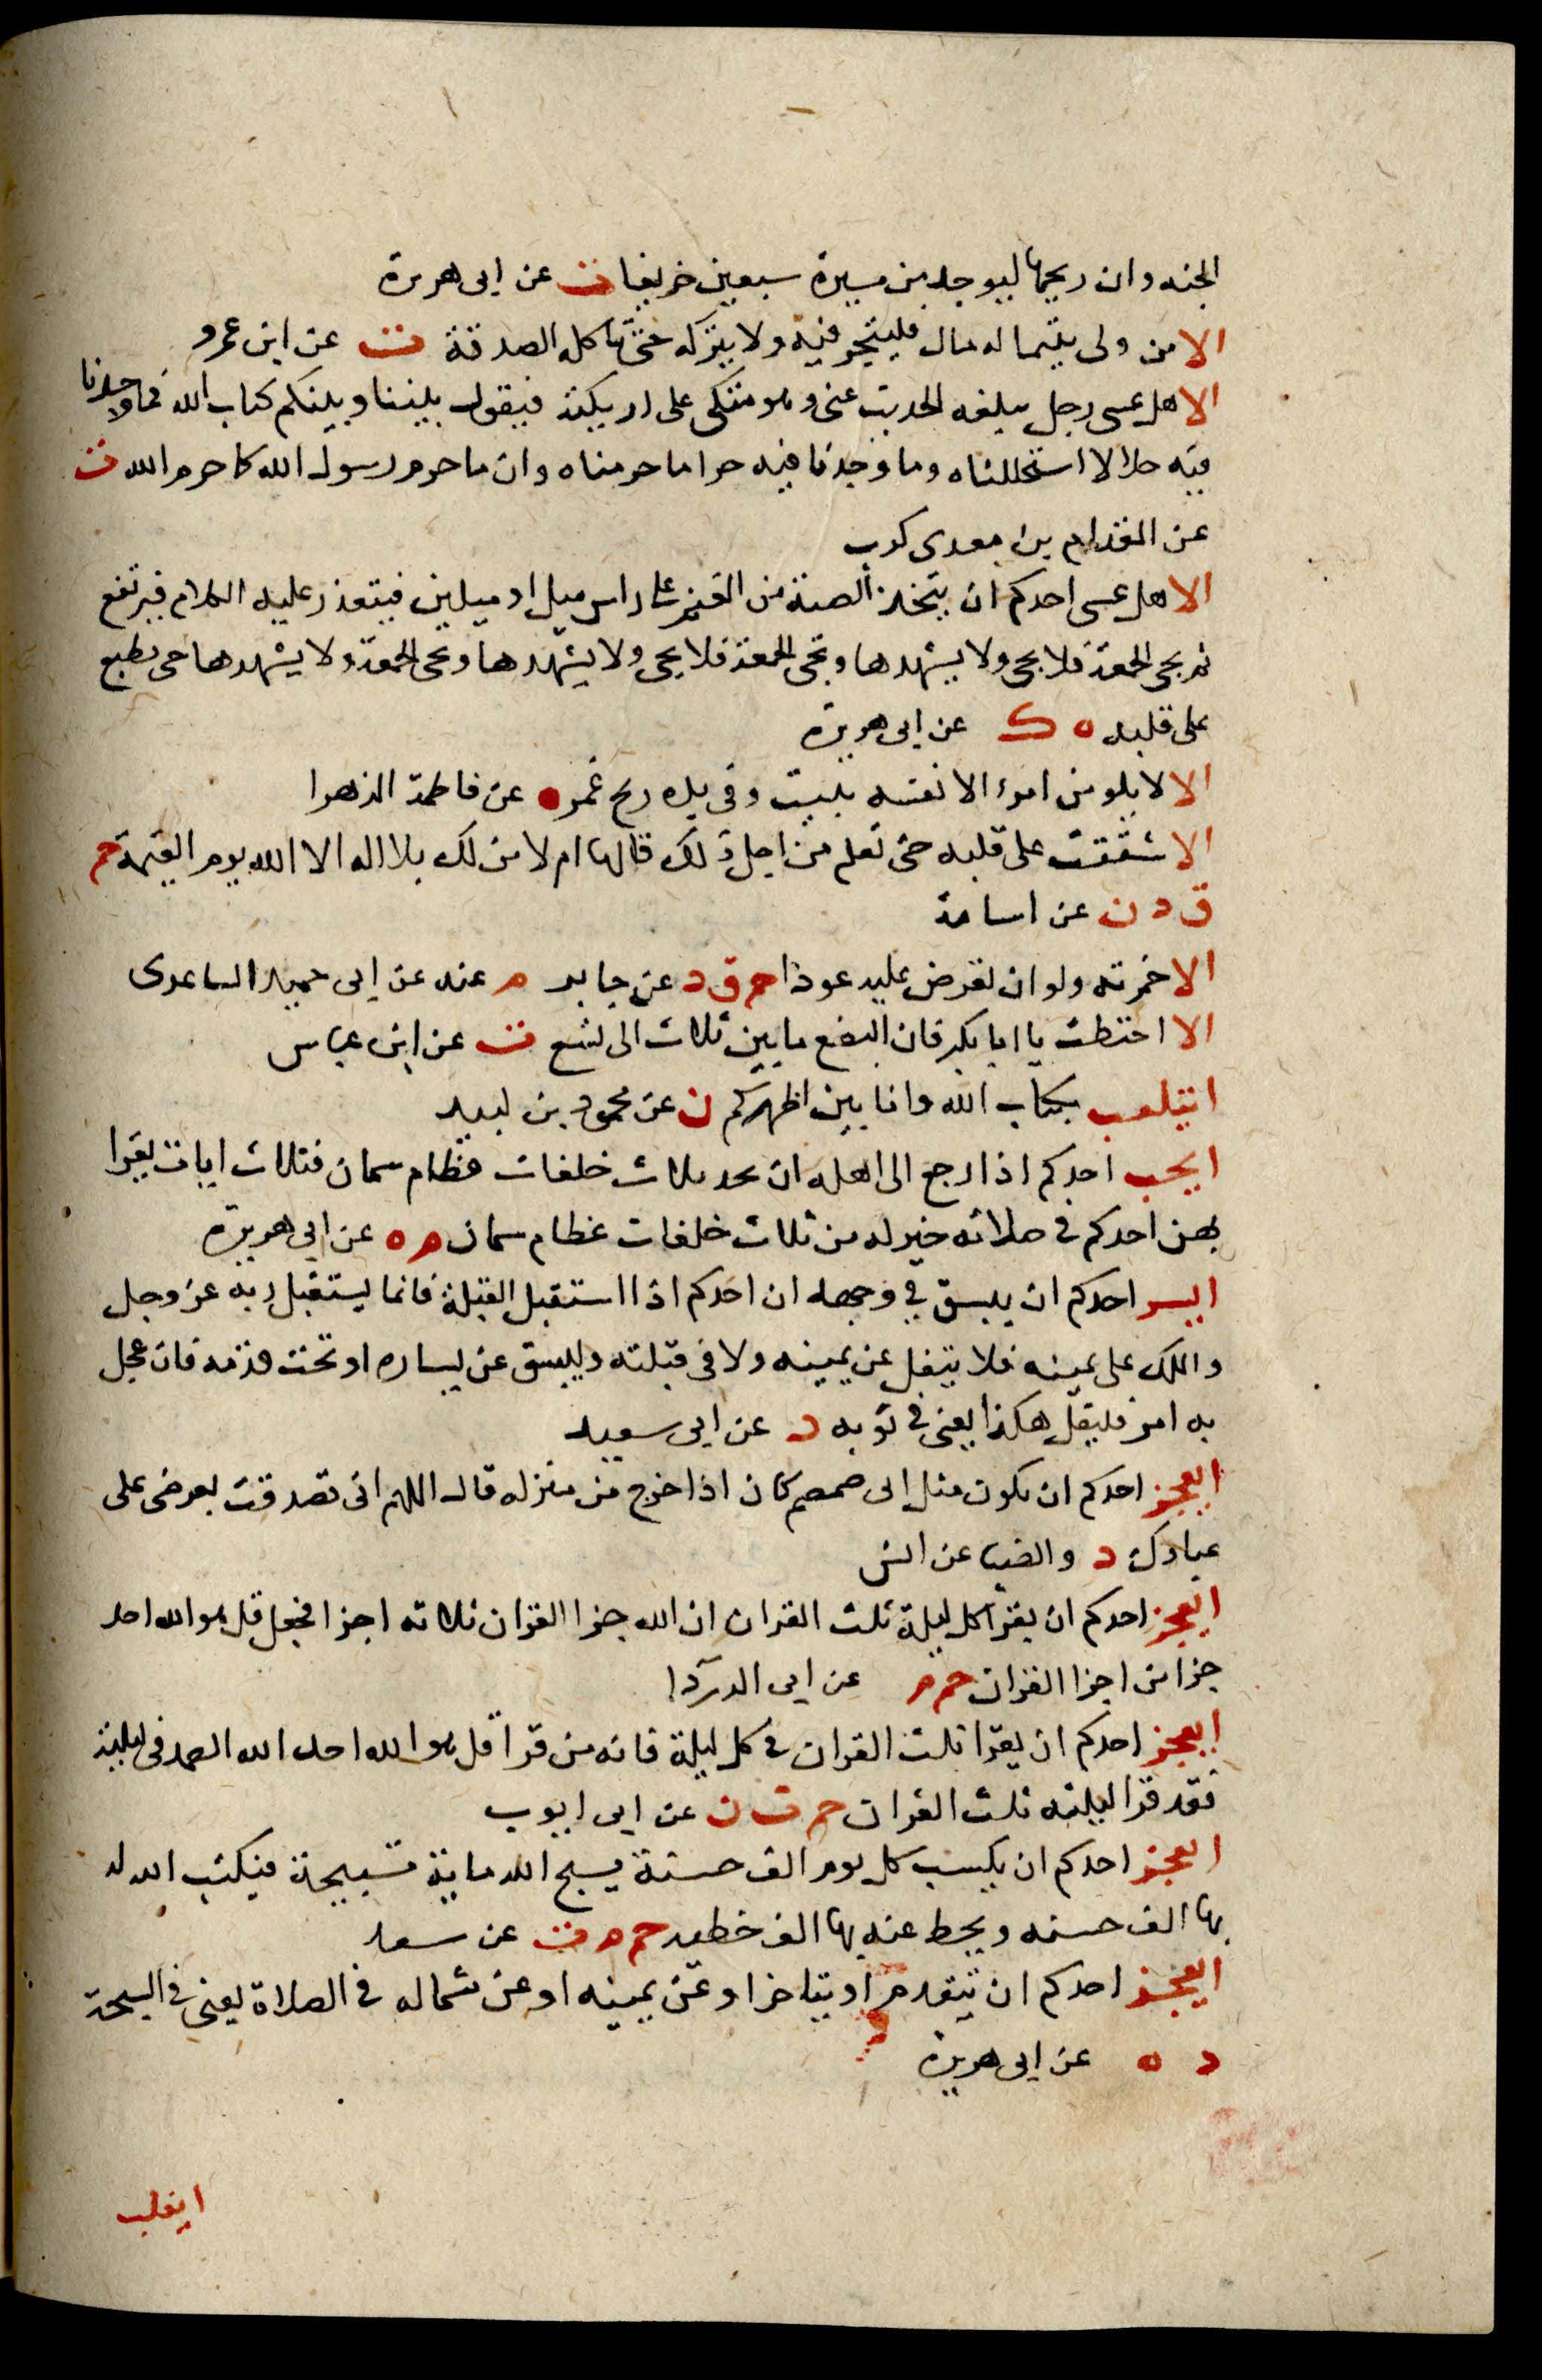 الجنه وان ريحها ليوجد من مسيرة سبعين خريفا ت عن ابى هريرة
الا من ولى يتيما له مال فليتجر فيه ولا يتركه حتى تاكله الصدقة ت عن ابن عمرو
الا هل عسى رجل يبلغه الحديث عنى وهو متكى على اريكته فيقول بيننا وبينكم كتاب الله فما وجدنا
فيه حلالا استحللناه وما وجدنا فيه حراما حرمناه وان ما حرم رسول الله كما حرم الله ت
عن المقدام بن معدى كرب
الا هل عسى احدكم ان يتخذ الصبة من الغنم على راس ميل او ميلين فيتعذر عليه الكلا فيرتفع
ثم تجى الجمعة فلا يجى ولا يشهدها وتجى الجمعة فلا يجى ولا يشهدها وتجى الجمعة ولا يشهدها حى يطبع
على قلبه ه ك عن ابى هريرة
الا لا يلومن امرء الا نفسه يبيت وفى يده ريح غمر ه عن فاطمة الزهرا
الا شققت على قلبه حتى تعلم من اجل ذلك قالها ام لا من لك بلا اله الا الله يوم القيمة حم
ق د ن عن اسامة
الا خمرته ولو ان تعرض عليه عودا حم ق د عن جابر م عنه عن ابى حميد الساعدى
الا احتطت يا ابا بكر فان البضع ما بين ثلاث الى تسع ت عن ابن عباس
ايتلعب بكتاب الله وانا بين اظهركم ن عن محمود بن لبيد
ايحب احدكم اذا رجع الى اهله ان يجد ثلاث خلفات عظام سمان فثلاث ايات يقرا
بهن احدكم فى صلاته خير له من ثلاث خلفات عظام سمان م ه عن ابى هريرة
ايسر احدكم ان يبسق في وجهه ان احدكم اذا استقبل القبلة فانما يستقبل ربه عز وجل
والملك على يمينه فلا يتفل عن يمينه ولا فى قبلته وليبسق عن يساره او تحت قدمه فان عجل
به امر فليقل هكذا يعنى فى ثوبه د عن ابى سعيد
ايعجز احدكم ان يكون مثل ابى ضمضم كان اذا خرج من منزله قال اللهم انى تصدقت بعرضى على
عبادك د والضيا عن انس
ايعجز احدكم ان يقرا كل ليلة ثلث القران ان الله جزا القران ثلاثه اجزا فجعل قل هو الله احد
جزا من اجزا القران حم م عن ابى الدردا
ايعجز احدكم ان يقرا ثلث القران في كل ليلة فانه من قرا قل هو الله احد الله الصمد فى ليلته
فقد قرا ليلته ثلث القران حم ت ن عن ابى ايوب
ايعجز احدكم ان يكسب كل يوم الف حسنة يسبح الله ماية تسبيحة فيكتب الله له
بها الف حسنه ويحط عنه بها الف خطيه حم م ت عن سعد
ايعجز احدكم ان يتقدم او يتاخر او عن يمينه او عن شماله فى الصلاة يعنى فى السبحة
د ه عن ابى هريرة
ايغلب